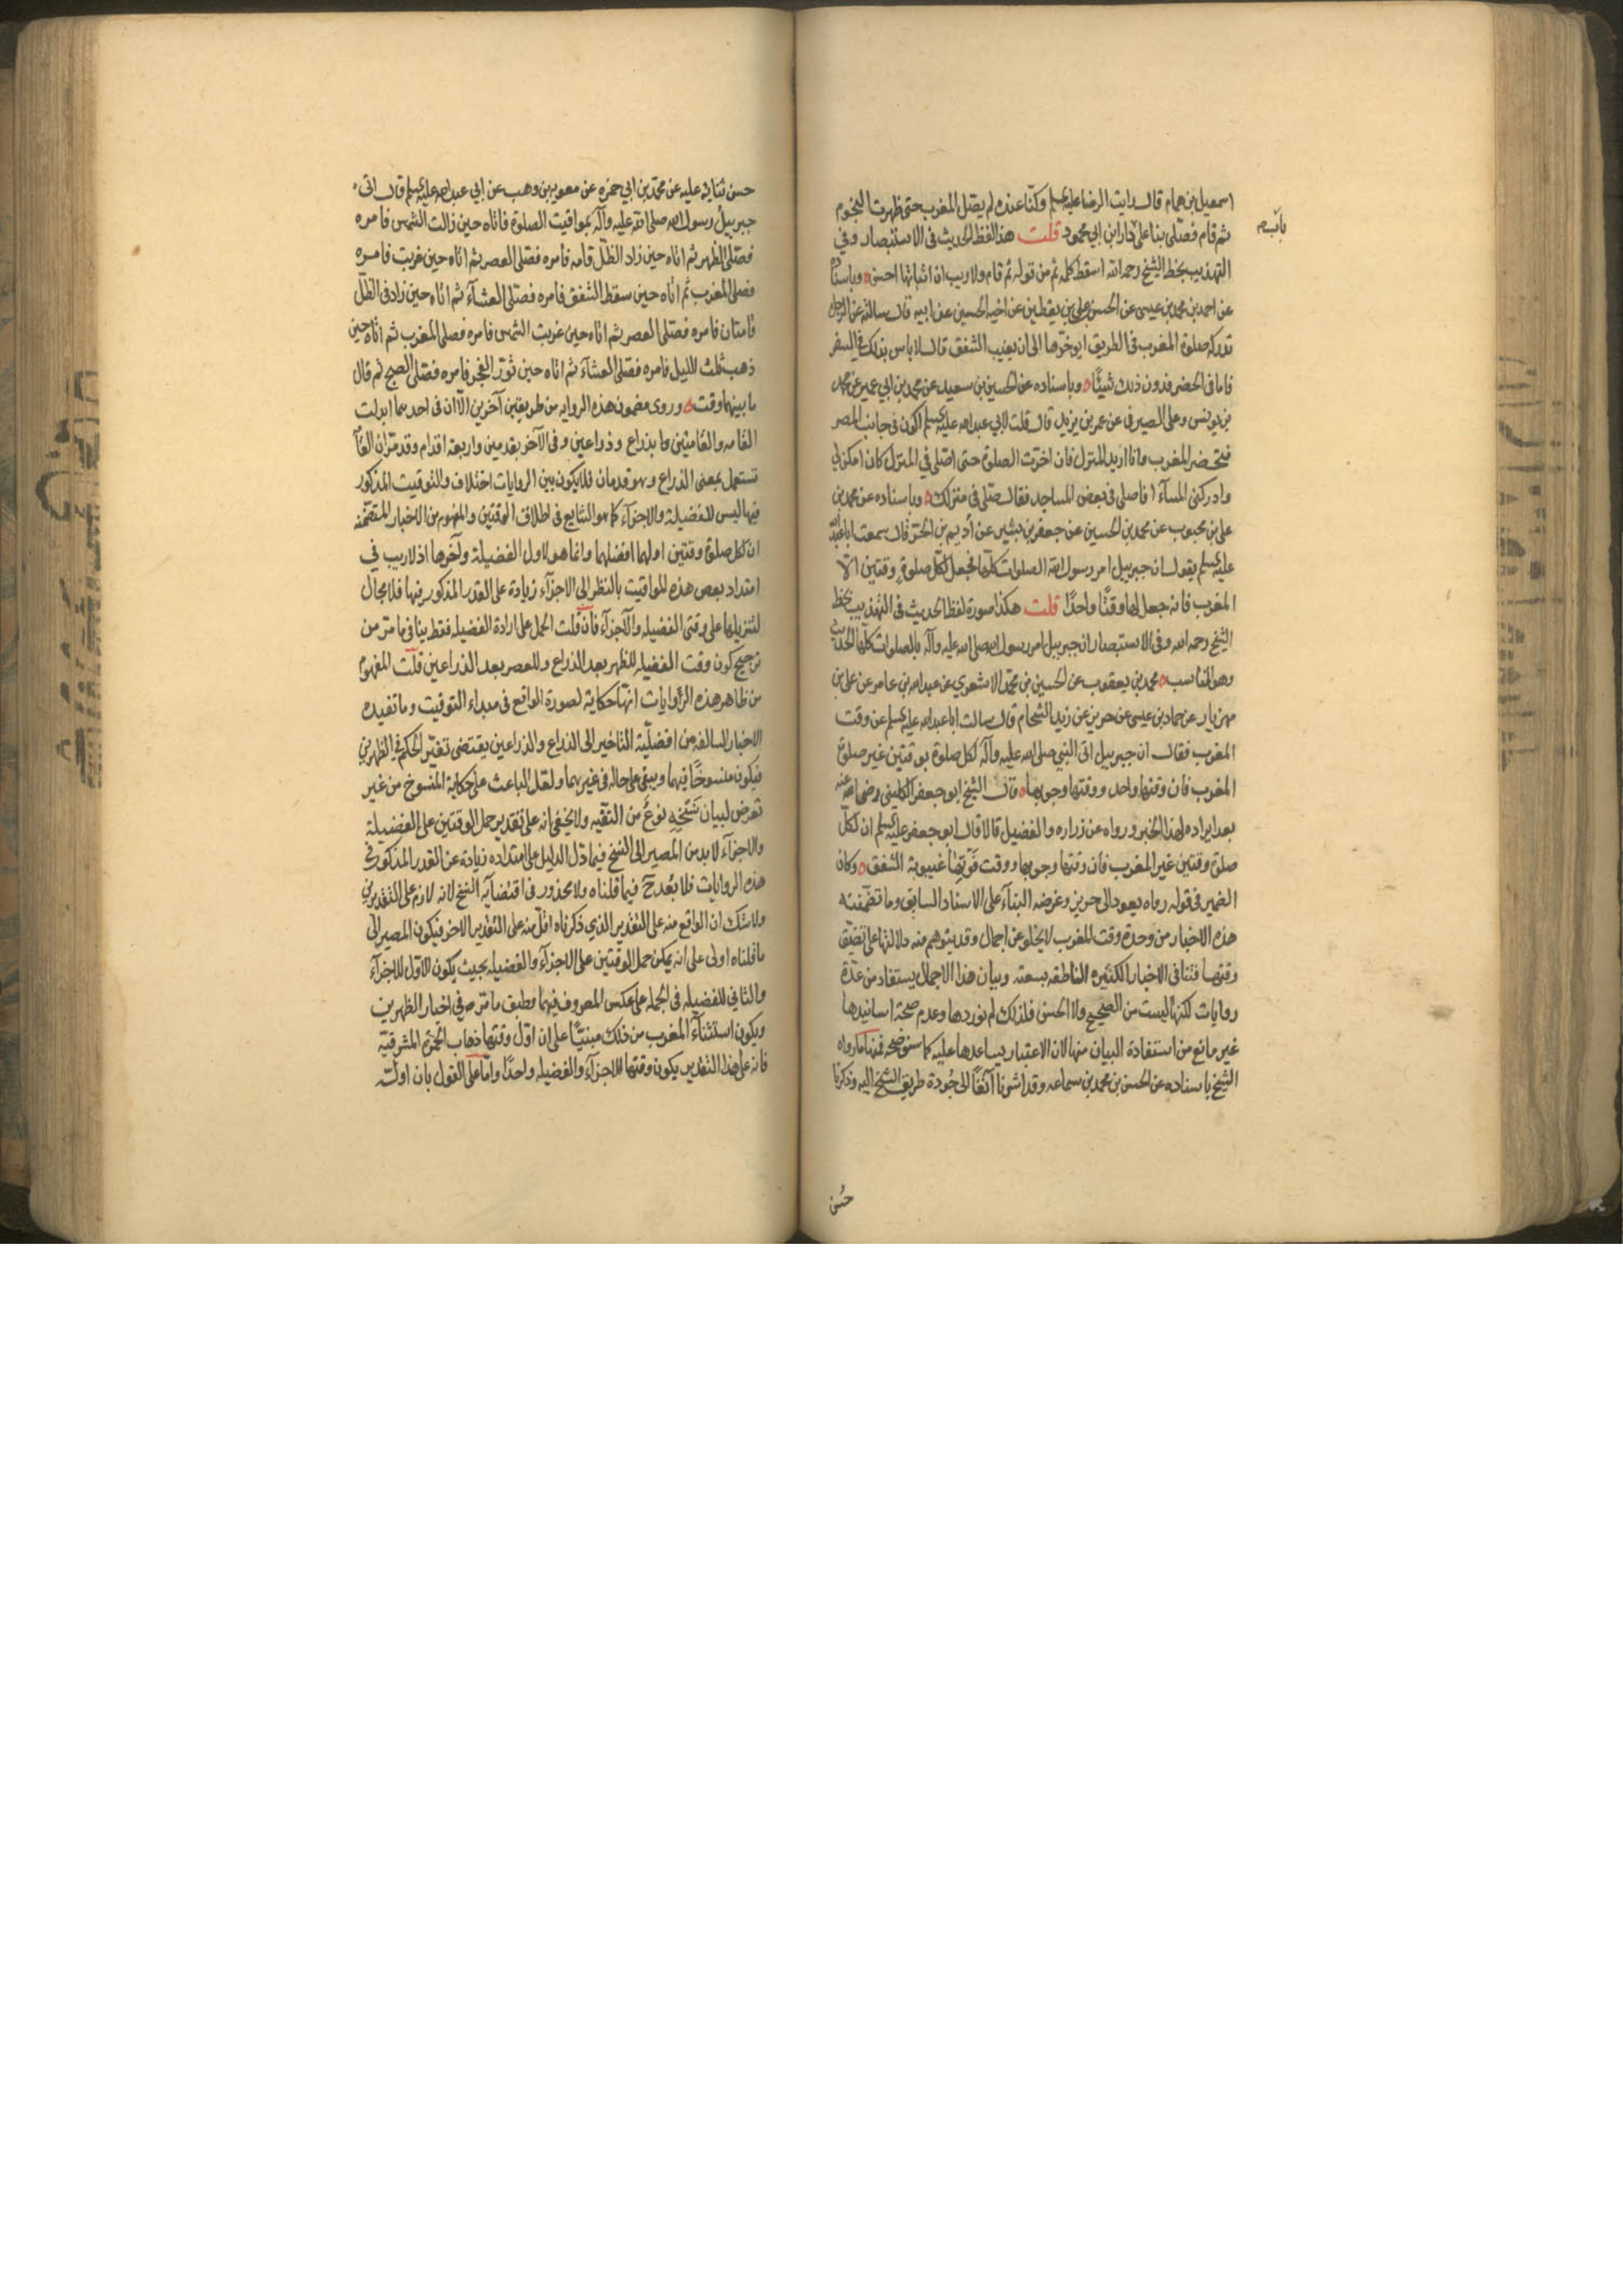 اسمعيل بن همام قال رايت الرضا عليه السلم وكنّا عنده لم يصل المغرب حتى ظهرت النجوم
ثم قام فصلّى بنا على باب دار ابن ابي محمود قلت هذا لفظ الحديث في الاستبصار وفي
باب صح
التهذيب بخط الشيخ رحمه الله اسقط كلمة ثم من قوله ثم قام ولا ريب ان اثباتها احسن وباسناده
عن احمد بن محمد بن عيسى عن الحسن بن علي بن يقطين عن اخيه الحسين عن ابيه قال سالته عن الرجل
تدركه صلوة المغرب في الطريق ايوخرها الى ان يغيب الشفق قال لا باس بذلك في السفر
فاما في الحضر فدون ذلك شيئًا وباسناده عن الحسين بن سعيد عن محمد بن ابي عمير عن محمد
بن يونس وعلى الصيرفي عن عمر بن يزيد قال قلت لابي عبد الله عليه السلم اكون في جانب المصر
فتحضر المغرب وانا اريد المنزل فان اخرت الصلوة حتى اصلي في المنزل كان امكن لي
وادركني المسآء افاصلي في بعض المساجد فقال صلّ في منزلك وباسناده عن محمد بن
علي بن محبوب عن محمد بن الحسين عن جعفر بن بشير عن اُديم بن الحر قال سمعت ابا عبد الله
عليه السلم يقول ان جبرييل امر رسول الله الصلوات كلّها فجعل لكل صلوةٍ وقتين الّا
المغرب فانه جعل لها وقتًا واحدًا قلت هكذا صورة لفظ الحديث في التهذيب بخط
الشيخ رحمه الله وفي الاستبصار ان جبرييل امر رسول الله صلى الله عليه وآله بالصلوات كلّها الحديث
وهو المناسب محمد بن يعقوب عن الحسين بن محمّد الاشعري عن عبد الله بن عامر عن علي بن
مهزيار عن حماد بن عيسى عن حريز عن زيد الشحام قال سالت ابا عبد الله عليه السلم عن وقت
المغرب فقال ان جبرييل اتى النبي صلى الله عليه وآله لكل صلوة بوقتين غير صلوة
المغرب فان وقتها واحد ووقتها وجوبها قال الشيخ ابو جعفر الكليني رضى الله عنه
بعد ايراده لهذا الخبر ورواه عن زراره والفضيل قالا قال ابو جعفر عليه السلم ان لكلّ
صلوة وقتين غير المغرب فان وقتها وجوبها ووقت فَوْتِها غيبوبة الشفق وكان
الضمير في قوله رواه يعود الى حريز وغرضه البنآء على الاسناد السابق وما تضمّنته
هذه الاخبار من وحدة وقت المغرب لا يخلو عن اجمال وقد يتوهم منه دلالتها على تضيّق
وقتها فتنافي الاخبار الكثيره الناطقه بسعته وبيان هذا الاجمال يستفاد من عدّة
روايات لكنها ليست من الصحيح ولا الحسن فلذلك لم نوردها وعدم صحة اسانيدها
غير مانع من استفادة البيان منها لان الاعتبار يساعدها عليه كما سنوضحه فمنها ما رواه
الشيخ باسناده عن الحسن بن محمد بن سماعه وقد اشرنا آنفًا الى جُودة طريق الشيخ اليه وذكرنا
حُسن
حسن ثنائه عليه عن محمّد بن ابي حمزه عن معويه بن وهب عن ابي عبد الله عليه السلم قال اتى
جبرييل رسول الله صلى الله عليه وآله بمواقيت الصلوة فاتاه حين زالت الشمس فامره
فصلّى الظهر ثم اتاه حين زاد الظلّ قامه فامره فصلى العصر ثم اتاه حين غربت فامره
فصلى المغرب ثم اتاه حين سقط الشفق فامره فصلى العشآء ثم اتاه حين زاد في الظلّ
قامتان فامره فصلى العصر ثم اتاه حين غربت الشمس فامره فصلى المغرب ثم اتاه حين
ذهب ثلث الليل فامره فصلّى العشآء ثم اتاه حين نوّر الفجر فامره فصلّى الصبح ثم قال
ما بينهما وقت وروى مضمون هذه الروايه من طريقين آخرين الّا ان في احدهما ابدلت
القامه والقامتين بذراع وذراعين وفي الآخر بقدمين واربعة اقدام وقد مرّ ان القامة
تستعمل بمعنى الذراع وهو قدمان فلا يكون بين الروايات اختلاف والتوقيت المذكور
فيها ليس للفضيلة والاجزآء كما هو الشايع في اطلاق الوقتين والمفهوم من الاخبار المتضمّنه
ان لكل صلوة وقتين اولهما افضلهما وانما هو لاول الفضيلة وآخرها اذ لا ريب في
امتداد بعض هذه المواقيت بالنظر الى الاجزآء زيادة على القدر المذكور فيها فلا مجال
لتنزيلها على وقتى الفضيله والاجزآء فان قلت الحمل على ارادة الفضيله فقط ينافي ما مرّ من
ترجيح كون وقت الفضيلة للظهر بعد الذراع وللعصر بعد الذراعين قلت المفهوم
من ظاهر هذه الرّوايات انها حكاية لصورة الواقع في مبداء التوقيت وما تفيده
الاخبار السالفه من افضليّة التاخير الى الذراع والذراعين يقتضى تغيّر الحكم في الظهرين
فيكون منسوخًا فيهما ويبقى على حاله في غيرهما ولعل الباعث على حكاية المنسوخ من غير
تعرض لبيان نَسْخِهِ نوعٌ من التقيه ولا يخفى انه على تقدير حمل الوقتين على الفضيلة
والاجزآء لا بد من المصير الى النسخ فيما دل الدليل على امتداده زيادة عن القدر المذكور في
هذه الروايات فلا بُعد ح فيما قلناه ولا محذور في اقتضايه النسخ لانه لازم على التقديرين
ولا شك ان الواقع منه على التقدير الذي ذكرناه اقلّ منه على التقدير الاخر فيكون المصير الى
ما قلناه اولى على انه يمكن حمل الوقتين على الاجزآء والفضيله بحيث يكون الاوّل للاجزآء
والثاني للفضيله في الجمله على عكس المعروف فيهما وطبق ما مرّ في اخبار الظهرين
ويكون استثنآء المغرب من ذلك مبنيًّا على ان اوّل وقتها ذهاب الحمرة المشرقيّة
فانه على هذا التقدير يكون وقتها للاجزآء والفضيله واحدًا وامّا على القول بان اوله